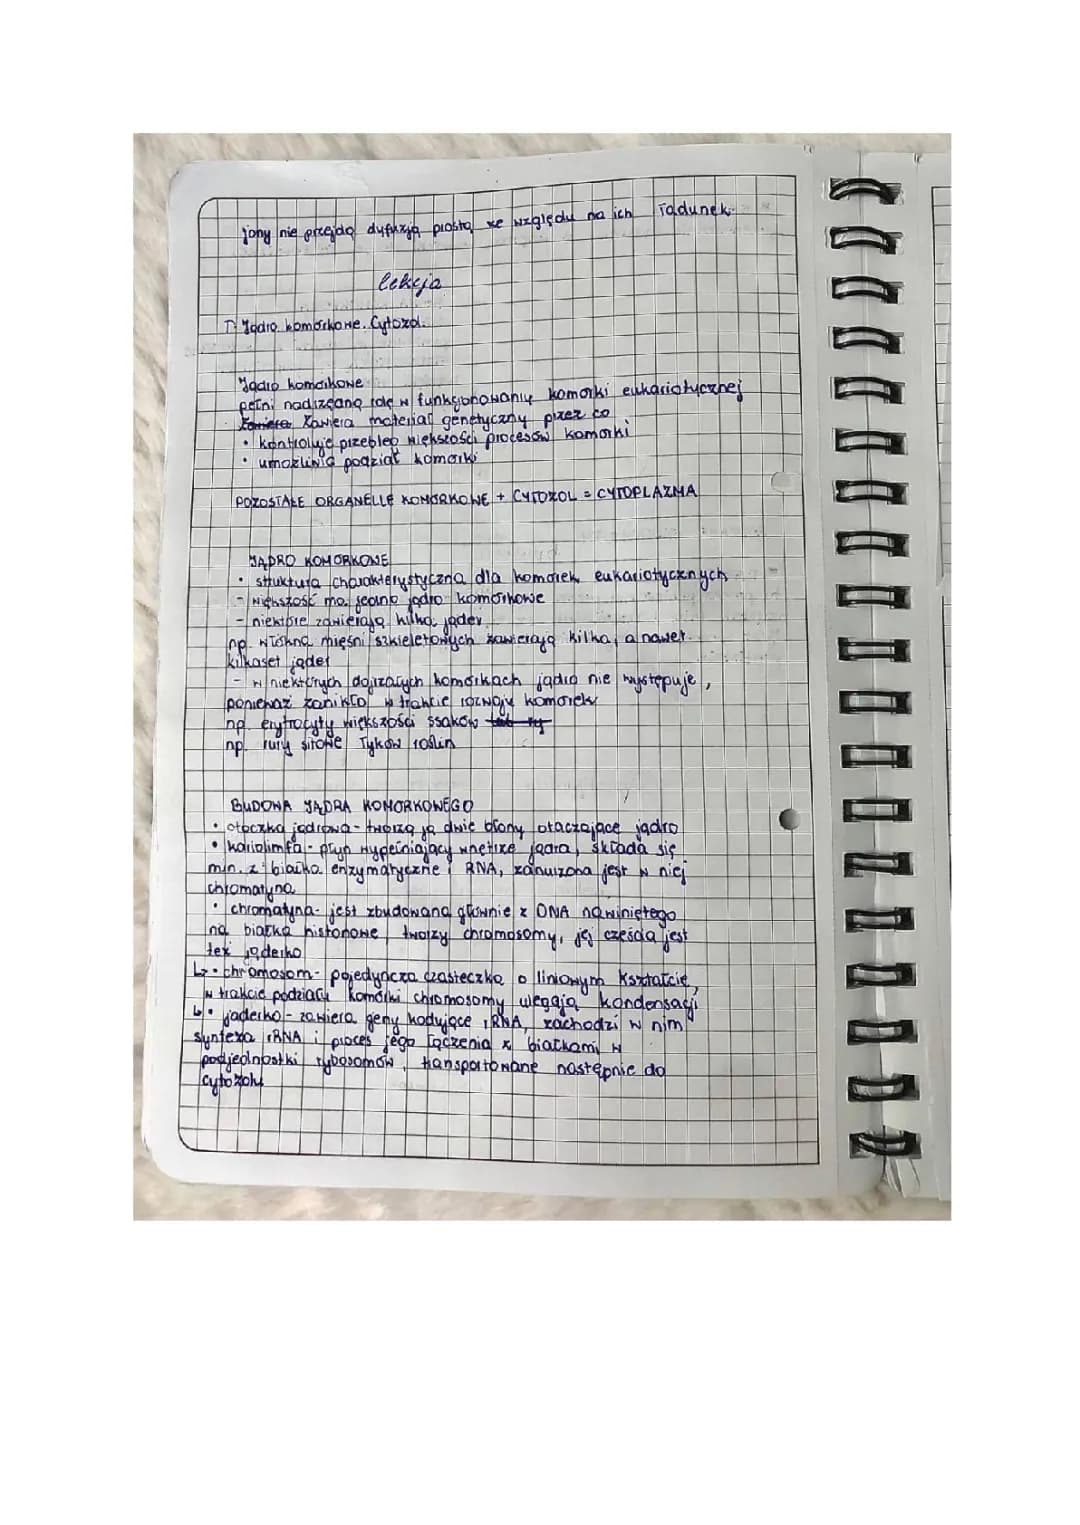 jony nie przejdą dyfuzją prostą ze względu na ich ładunek.
lekcja
T: Jądro komórkowe. Cytozol.
Jądro komórkowe
pełni nadrzędną rolę w funkcjonowaniu komórki eukariotycznej
Zawiera materiał genetyczny przez co
• kontroluje przebieg większości procesów komórki
• umożliwia podział komórki
POZOSTAŁE ORGANELLE KOMÓRKOWE + CYTOZOL = CYTOPLAZMA
JĄDRO KOMÓRKOWE
• struktura charakterystyczna dla komórek eukariotycznych
- większość ma jedno jądro komórkowe
- niektóre zawierają kilka jąder
np. włókna mięśni szkieletowych zawierają kilka, a nawet
kilkaset jąder
- w niektórych dojrzałych komórkach jądro nie występuje,
ponieważ zanikło w trakcie rozwoju komórek
np. erytrocyty większości ssaków
np. rury sitowe łyków roślin
BUDOWA JĄDRA KOMÓRKOWEGO
• otoczka jądrowa - tworzą ją dwie błony otaczające jądro
• kariolimfa - płyn wypełniający wnętrze jądra, składa się
m.in. z białka enzymatyczne i RNA, zanurzona jest w niej
chromatyna
• chromatyna - jest zbudowana głównie z DNA nawiniętego
na białka histonowe, tworzy chromosomy, jej częścią jest
też jąderko
↳ • chromosom - pojedyncza cząsteczka o liniowym kształcie,
w trakcie podziału komórki chromosomy ulegają kondensacji
↳ • jąderko - zawiera geny kodujące rRNA, zachodzi w nim
synteza rRNA i proces jego łączenia z białkami w
podjednostki rybosomów, transportowane następnie do
cytozolu